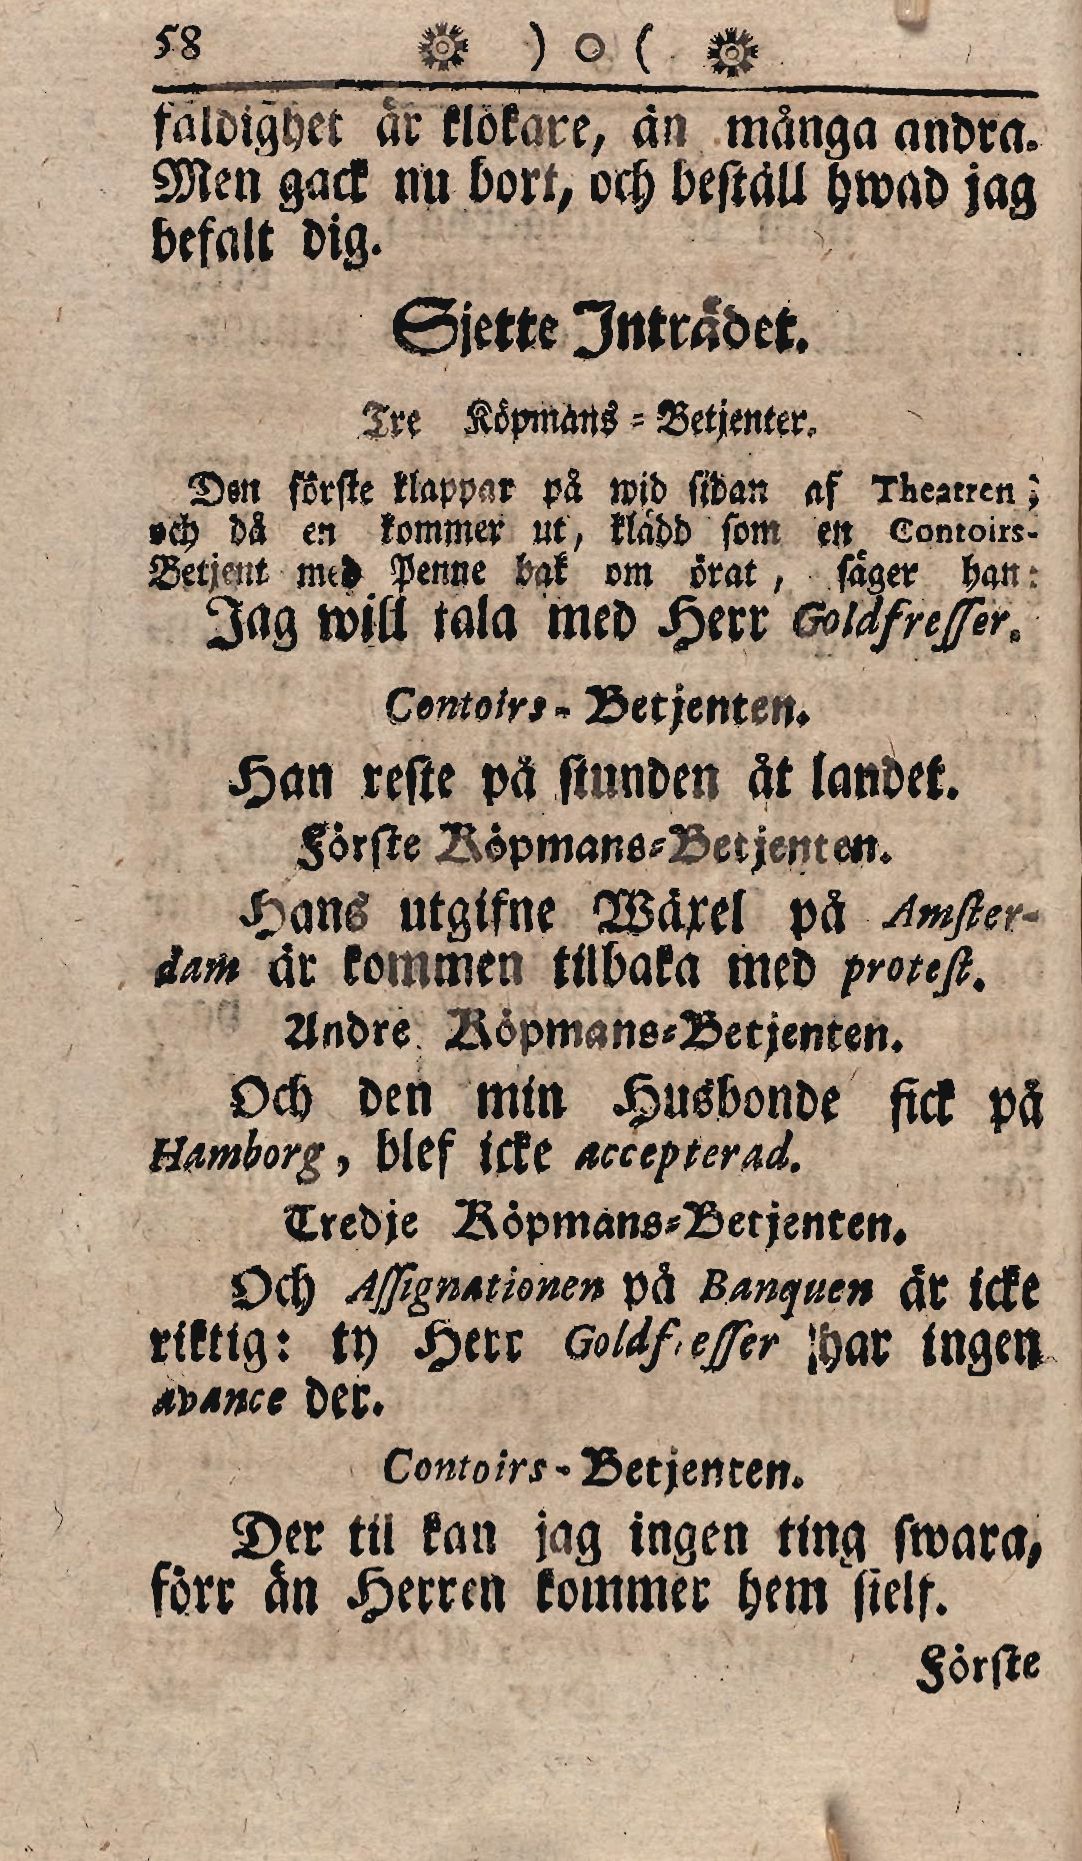 58 ) o (
fäldighet är klokare, än många andra.
Men gack nu bort, och beställ hwad jag
befalt dig.
Sjette Inträdet.
Tre Köpmans-Betjenter.
Den förste klappar på wid sidan af Theatren;
och då en kommer ut, klädd som en Contoirs-
Betjent med Penne bak om örat, säger han:
Jag will tala med Herr Goldfresser.
Contoirs-Betjenten.
Han reste på stunden åt landet.
Förste Köpmans-Betjenten.
Hans utgifne Wäxel på Amster-
dam är kommen tilbaka med protest.
Andre Köpmans-Betjenten.
Och den min Husbonde fick på
Hamborg, blef icke accepterad.
Tredje Köpmans-Betjenten.
Och Assignationen på Banquen är icke
riktig: ty Herr Goldfresser har ingen
avance der.
Contoirs-Betjenten.
Der til kan jag ingen ting swara,
förr än Herren kommer hem sielf.
Förste